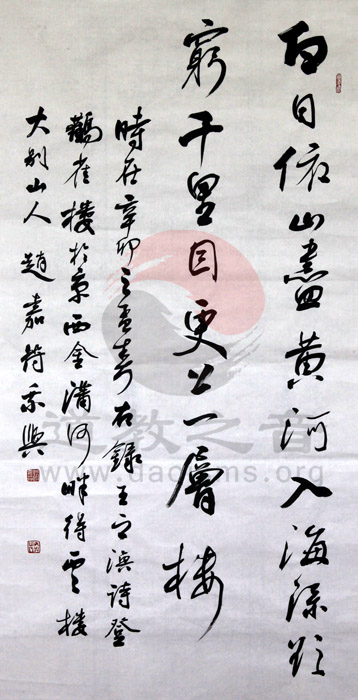 白日依山盡黄河入海流欲
窮千里目更上一層樓
時在辛卯之孟春右録王之涣詩登
鸛雀樓於京西金溝河畔得雲樓
大别山人趙嘉符乘興
道教之音
www.daoisms.org